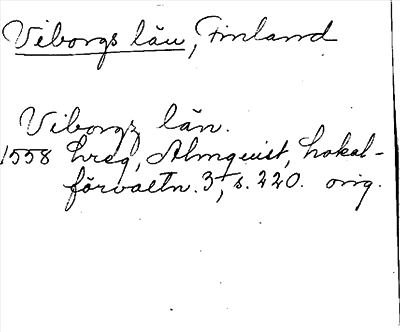 Viborgs län, Finland
Viborgs län.
1558 hreg, Almquist, Lokal-
förvaltn. 3, s. 220. orig.